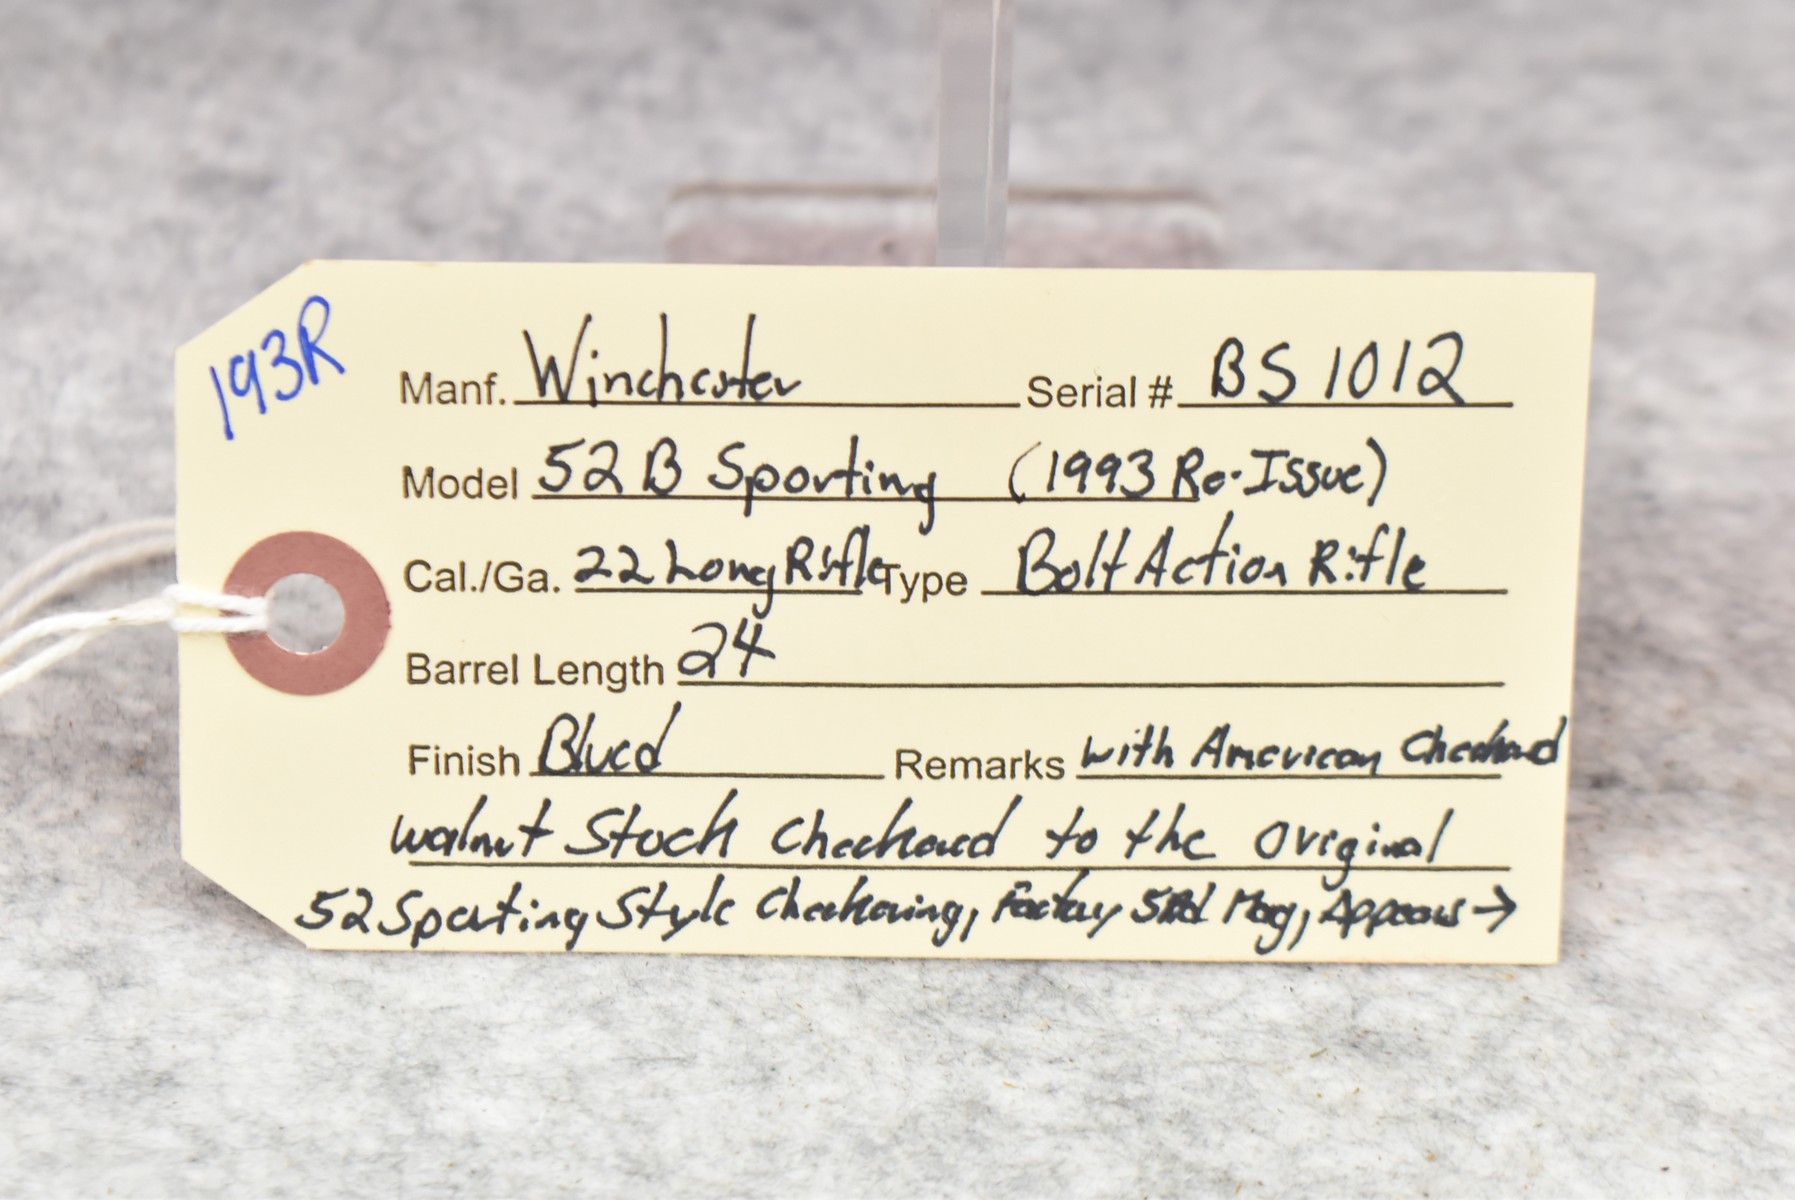 193R
Manf. Winchester Serial # BS1012
Model 52B Sporting (1993 Re-Issue)
Cal./Ga. 22 Long Rifle Type Bolt Action Rifle
Barrel Length 24
Finish Blued Remarks with American Checkered
walnut Stock Checkered to the Original
52 Sporting Style Checkering, Factory 5Rd Mag, Appears →